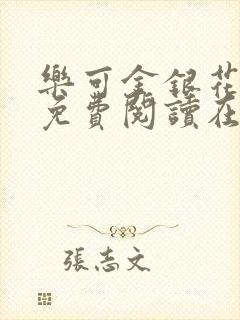 樂可金銀花
免費閱讀在
張志文